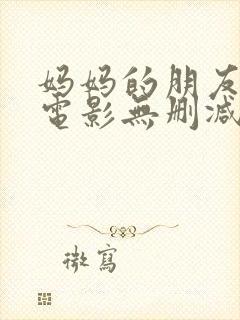 妈妈的朋友
電影無删减
微寫